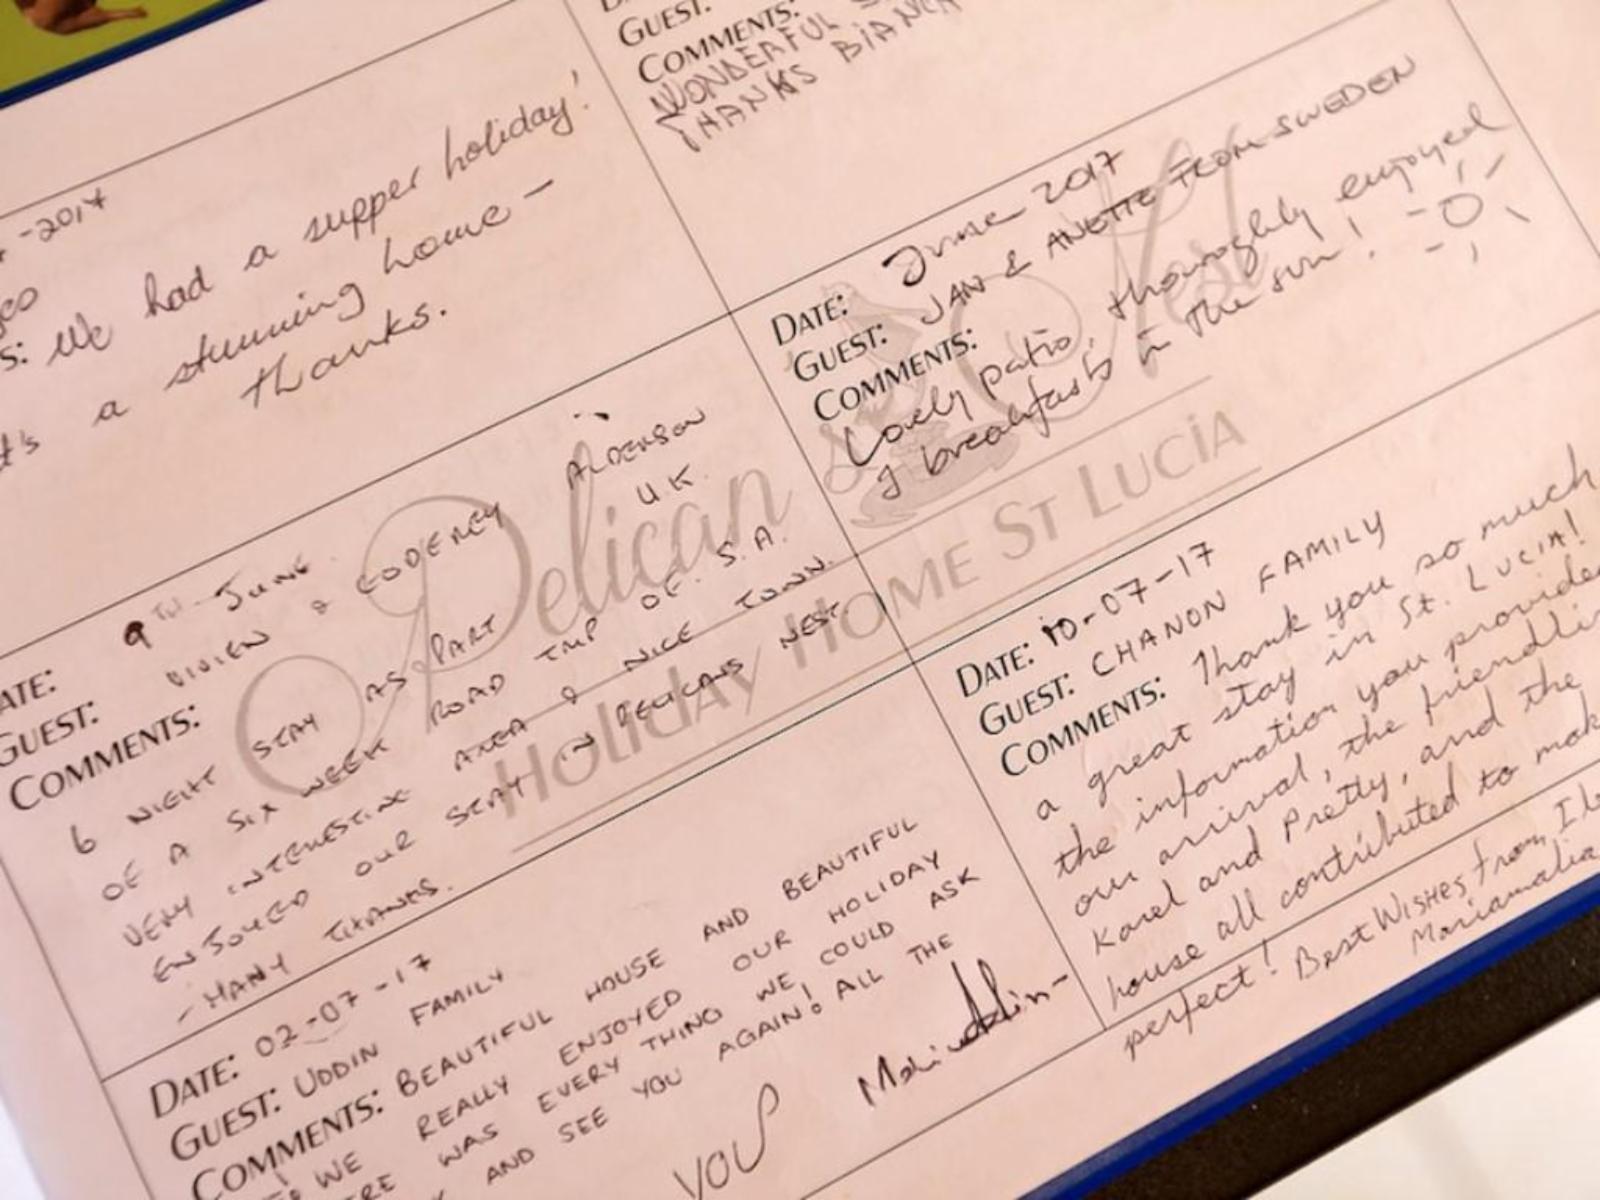 -2014
s: We had a supper holiday!
t's a stunning home -
thanks.
GUEST:
COMMENTS:
WONDERFUL
THANKS
DATE: June 2017
GUEST: JAN & ANETTE FROM SWEDEN
COMMENTS:
Lovely patio, thouroghly enjoyed
breakfasts in the sun!
Pelican's Nest
Holiday Home St Lucia
ATE: 9TH JUNE
GUEST: VIVIEN & RODERICK ALDERSON
COMMENTS: U.K.
6 NIGHT STAY AS PART
OF A SIX WEEK ROAD TRIP OF S.A.
VERY INTERESTING AREA & NICE TOWN.
ENJOYED OUR STAY IN PELICANS NEST.
- MANY THANKS.
DATE: 02-07-17
GUEST: UDDIN FAMILY
COMMENTS: BEAUTIFUL HOUSE AND BEAUTIFUL
WE REALLY ENJOYED OUR HOLIDAY
WAS EVERY THING WE COULD ASK
AND SEE YOU AGAIN! ALL THE
YOU
DATE: 10-07-17
GUEST: CHANON FAMILY
COMMENTS: Thank you so much
a great stay in St. LUCIA!
the information you provided
our arrival, the friendlin
Karel and Pretty, and the
house all contributed to mak
perfect! Best Wishes from,